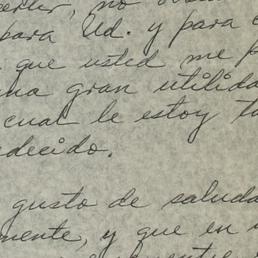 no
para Ud. y para
que usted me
una gran utilida
cual le estoy
decido.
gusto de saluda
mente, y que en